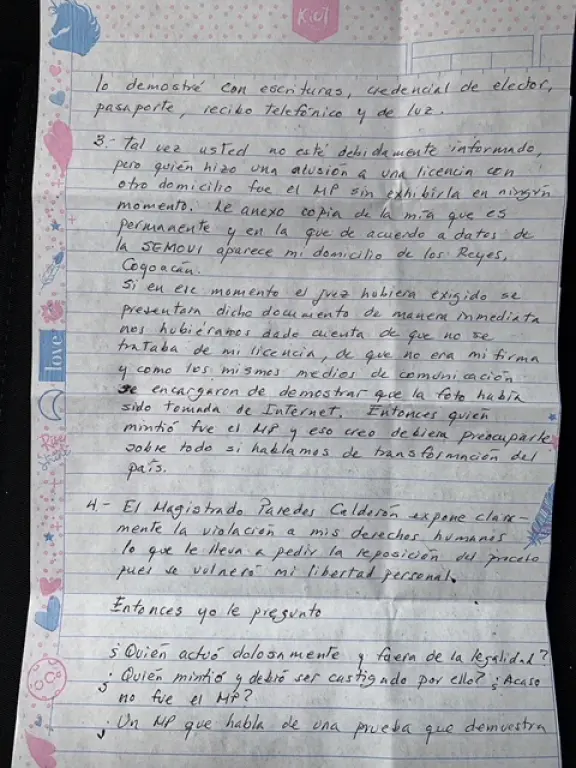 Kiut
lo demostré con escrituras, credencial de elector,
pasaporte, recibo telefónico y de luz.
3.- Tal vez usted no esté debidamente informado,
pero quién hizo una alusión a una licencia con
otro domicilio fue el MP sin exhibirla en ningún
momento. Le anexo copia de la mía que es
permanente y en la que de acuerdo a datos de
la SEMOVI aparece mi domicilio de los Reyes,
Coyoacán.
Si en ese momento el juez hubiera exigido se
presentara dicho documento de manera inmediata
nos hubiéramos dado cuenta de que no se
trataba de mi licencia, de que no era mi firma
y como los mismos medios de comunicación
se encargaron de demostrar que la foto había
sido tomada de Internet. Entonces quien
mintió fue el MP y eso creo debiera preocuparle
sobre todo si hablamos de transformación del
país.
4.- El Magistrado Paredes Calderón expone clara-
mente la violación a mis derechos humanos
lo que le lleva a pedir la reposición del proceso
pues se vulneró mi libertad personal.
Entonces yo le pregunto
¿Quién actuó dolosamente y fuera de la legalidad?
¿Quién mintió y debió ser castigado por ello? ¿Acaso
no fue el MP?
¿Un MP que habla de una prueba que demuestra
love